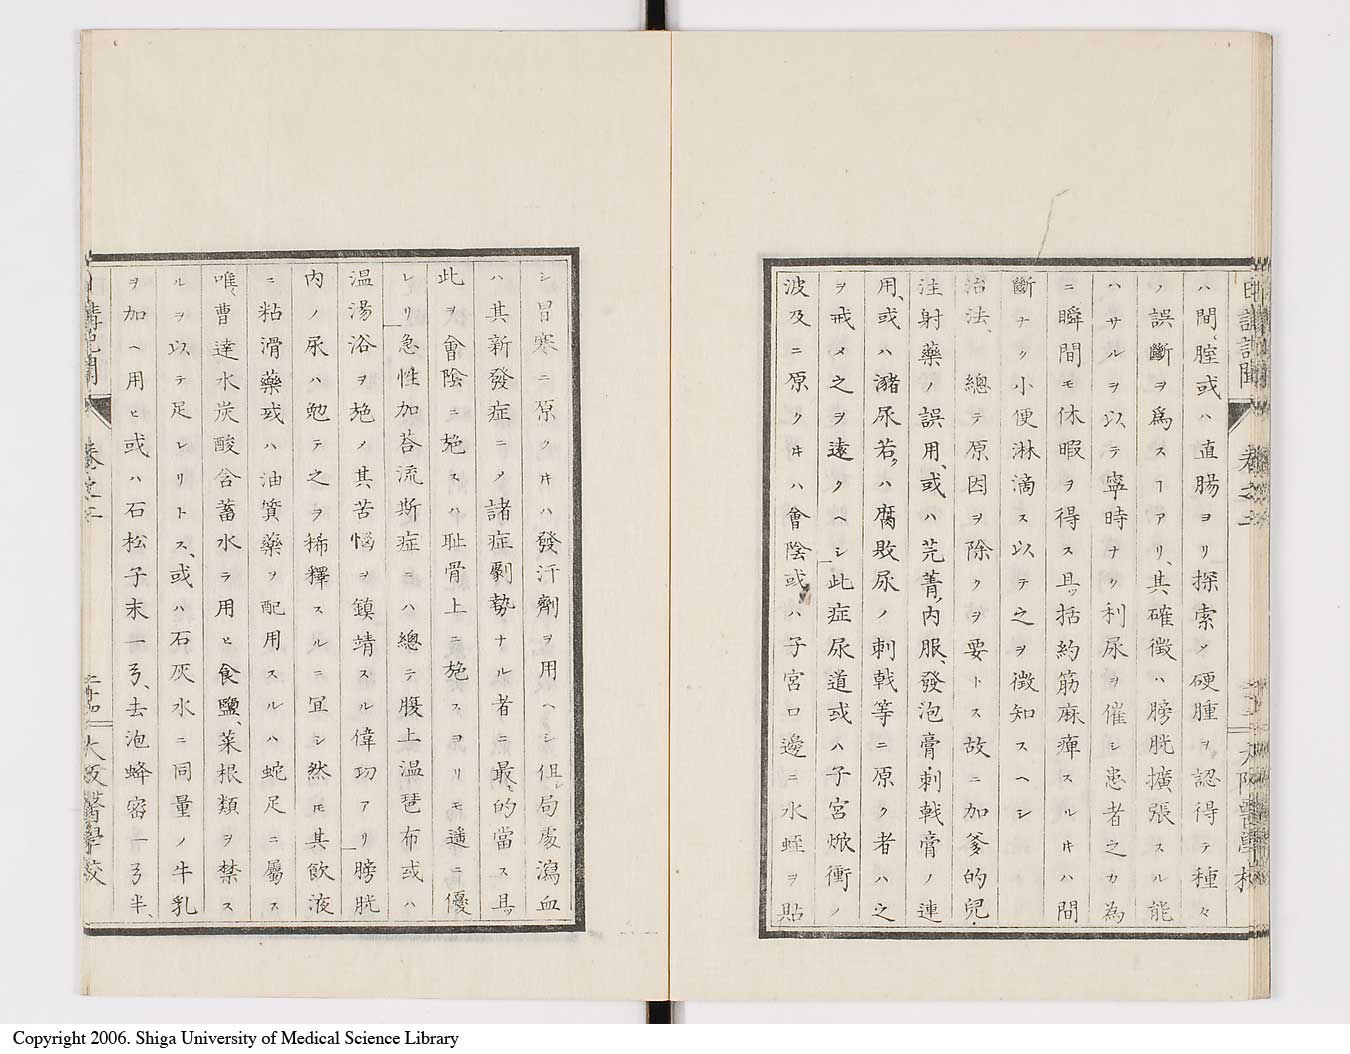 日講記聞 卷之二 大阪醫學校
ハ間、腟或ハ直腸ヨリ探索ノ硬腫ヲ認得テ種々
ノ誤斷ヲ爲スヿアリ、其確徴ハ膀胱擴張スル能
ハサルヲ以テ寧時ナク利尿ヲ催シ患者之カ為
ニ瞬間モ休暇ヲ得ス且ッ括約筋麻痺スルキハ間
斷ナク小便淋滴ス以テ之ヲ徴知スヘシ
治法、總テ原因ヲ除クヲ要トス故ニ加爹的兒・
注射藥ノ誤用、或ハ芫菁、內服、發泡膏・刺戟膏ノ連
用、或ハ瀦尿若クハ腐敗尿ノ刺戟等ニ原ク者ハ之
ヲ戒メ之ヲ遠クヘシ此症尿道或ハ子宮焮衝ノ
波及ニ原クキハ會陰或ハ子宮口邊ニ水蛭ヲ貼
シ冒寒ニ原クキハ發汗劑ヲ用ヘシ但局處瀉血
ハ其新發症ニノ諸症劇勢ナル者ニ最、的當ス且ッ
此ヲ會陰ニ施スハ耻骨上ニ施スヨリモ遥ニ優
レリ急性加荅流斯症ニハ總テ腹上温琶布或ハ
温湯浴ヲ施ノ其苦惱ヲ鎮靖スル偉功アリ膀胱
內ノ尿ハ勉テ之ヲ稀釋スルニ冝シ然モ其飲液
ニ粘滑藥或ハ油質藥ヲ配用スルハ蛇足ニ屬ス
唯、曹達水炭酸含蓄水ヲ用ヒ食鹽、菜根類ヲ禁ス
ルヲ以テ足レリトス、或ハ石灰水ニ同量ノ牛乳
ヲ加ヘ用ヒ或ハ石松子末一弓、去泡蜂蜜一弓半、
日講記聞 卷之二 二十四 大阪醫學校